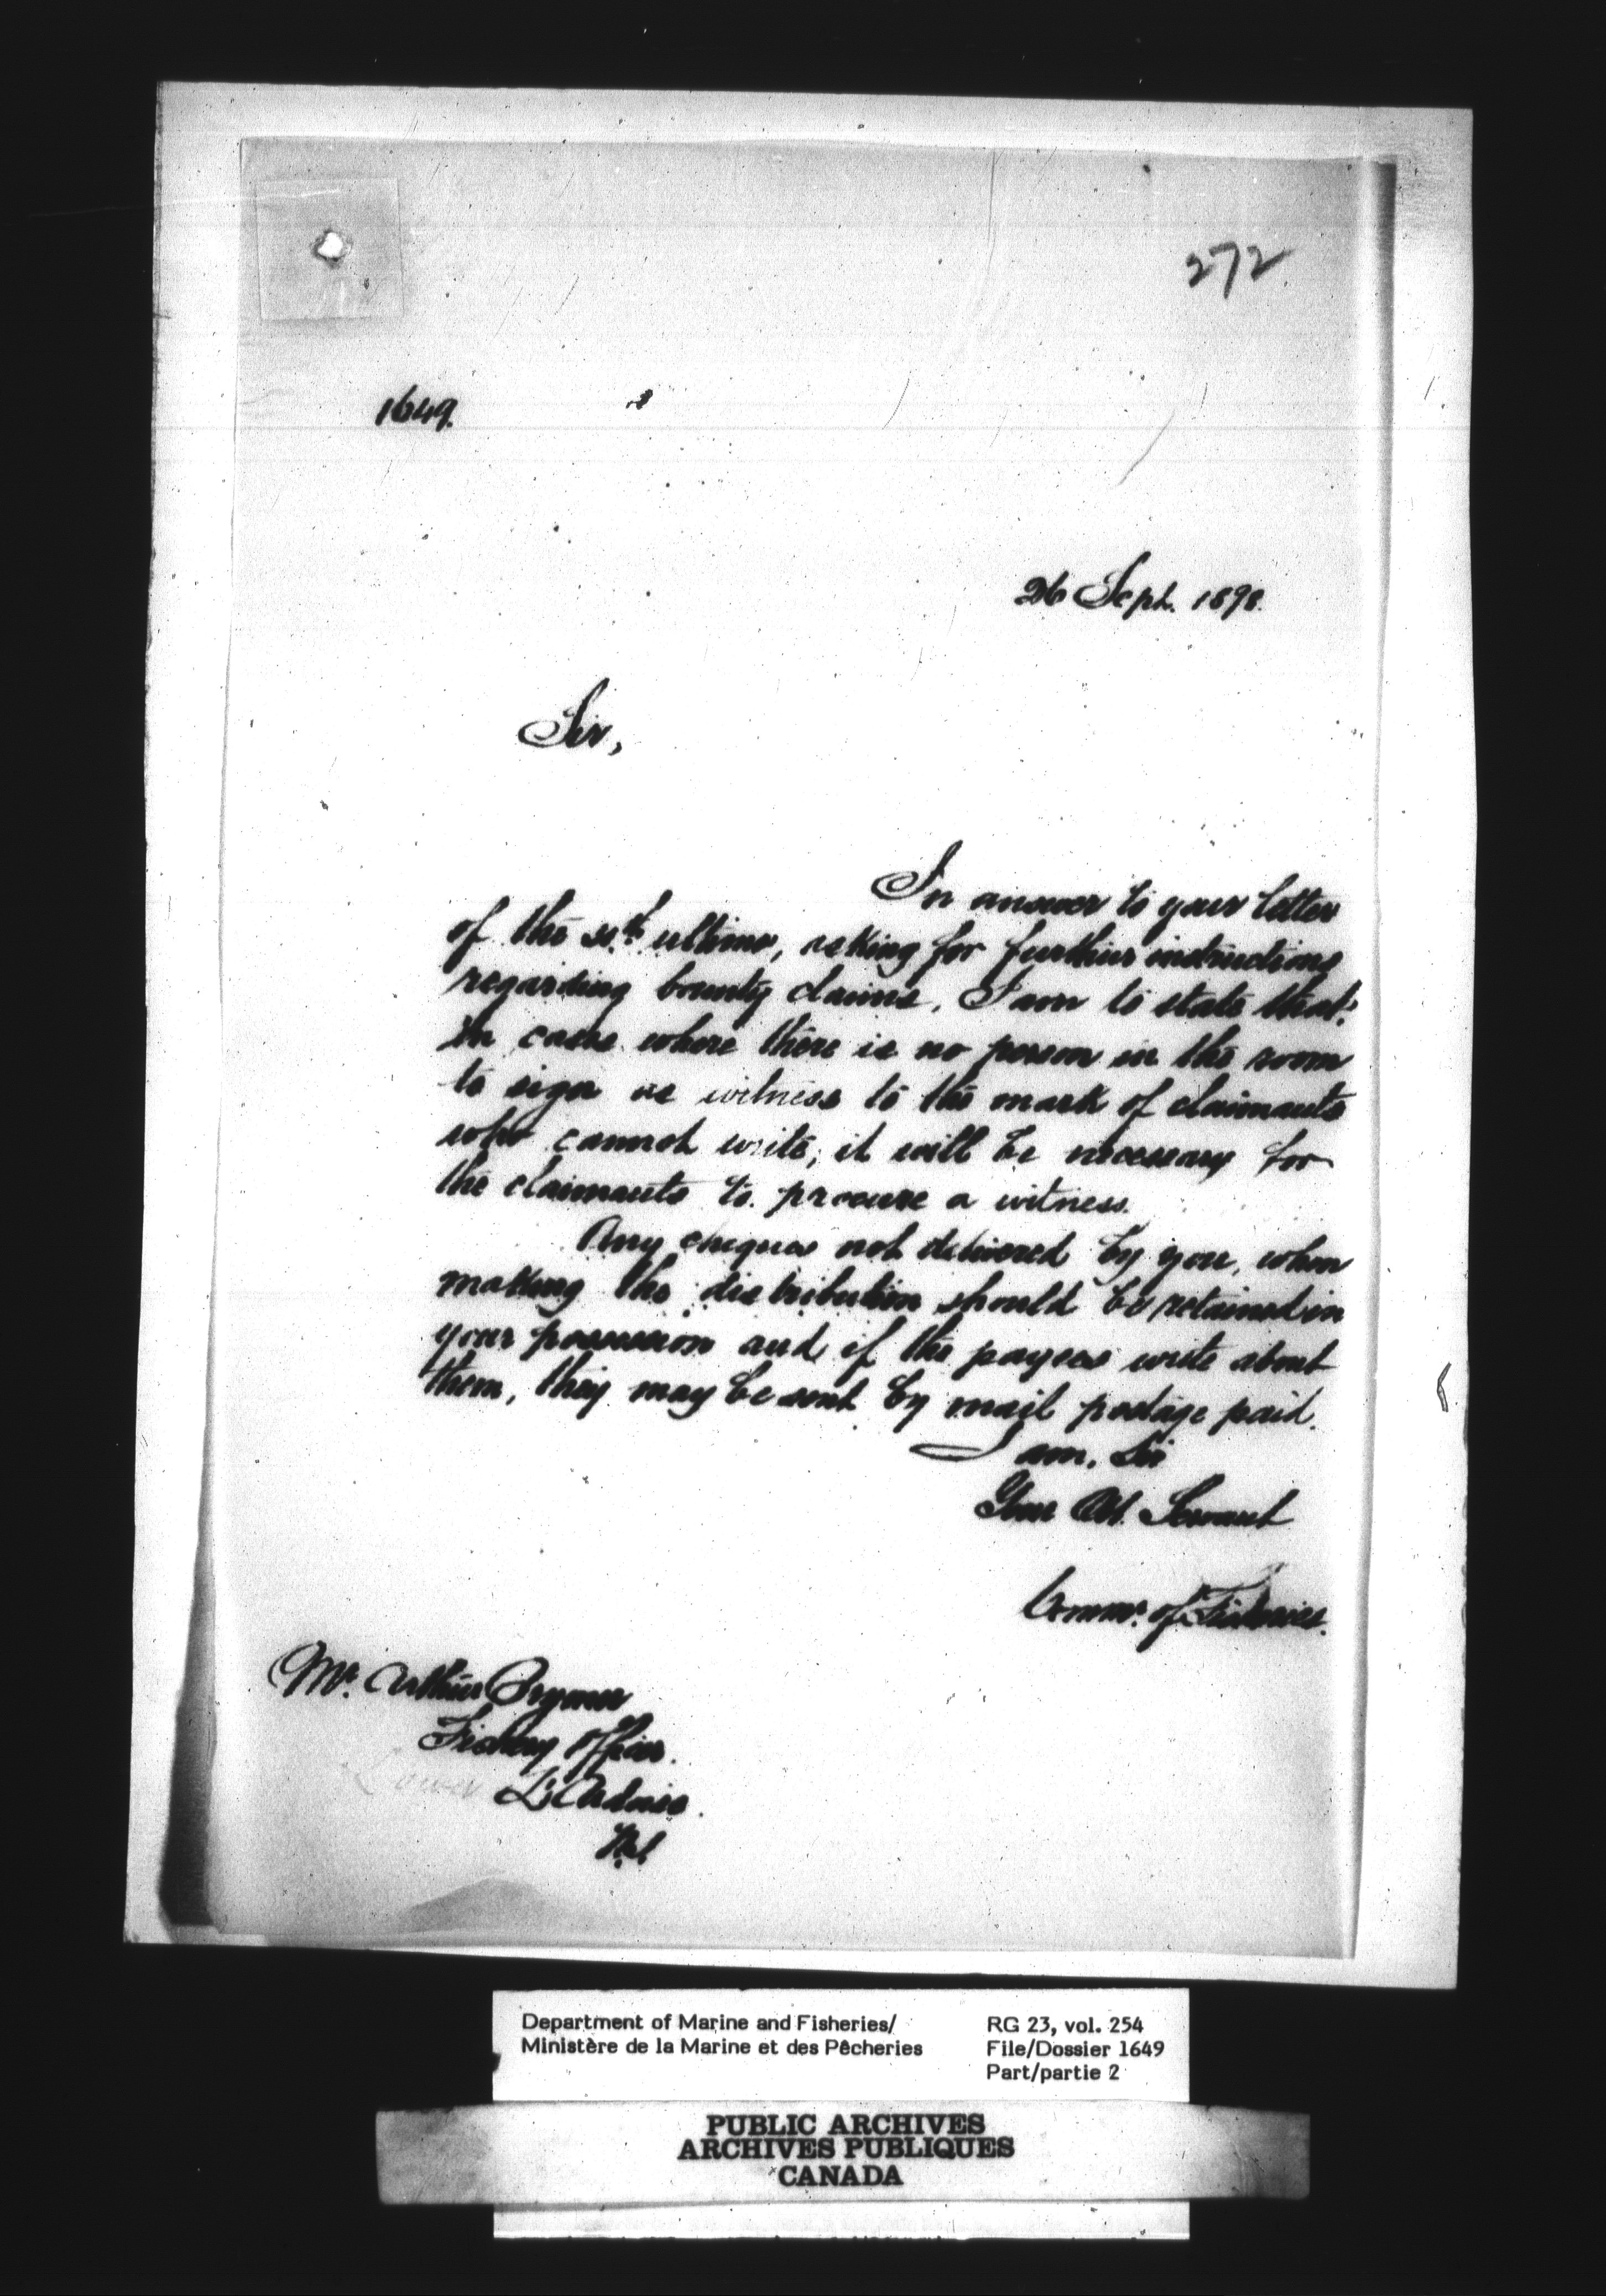 272
1649.
26 Sept. 1898.
Sir,
In answer to your letter
of the ultimo, asking for further instructions
regarding bounty claims, I am to state that:
in cases where there is no person in the room
to sign as witness to the mark of claimants
who cannot write, it will be necessary for
the claimants to procure a witness.
Any cheques not delivered by you, when
making the distribution should be retained in
your possession and if the payees write about
them, they may be sent by mail postage paid.
I am, Sir
Your Ob. Servant
Commr. of Fisheries.
Mr. Arthur
Fishery Officer.
Lower L'Ardoise.
N.S.
Department of Marine and Fisheries/
Ministère de la Marine et des Pêcheries
RG 23, vol. 254
File/Dossier 1649
Part/partie 2
PUBLIC ARCHIVES
ARCHIVES PUBLIQUES
CANADA